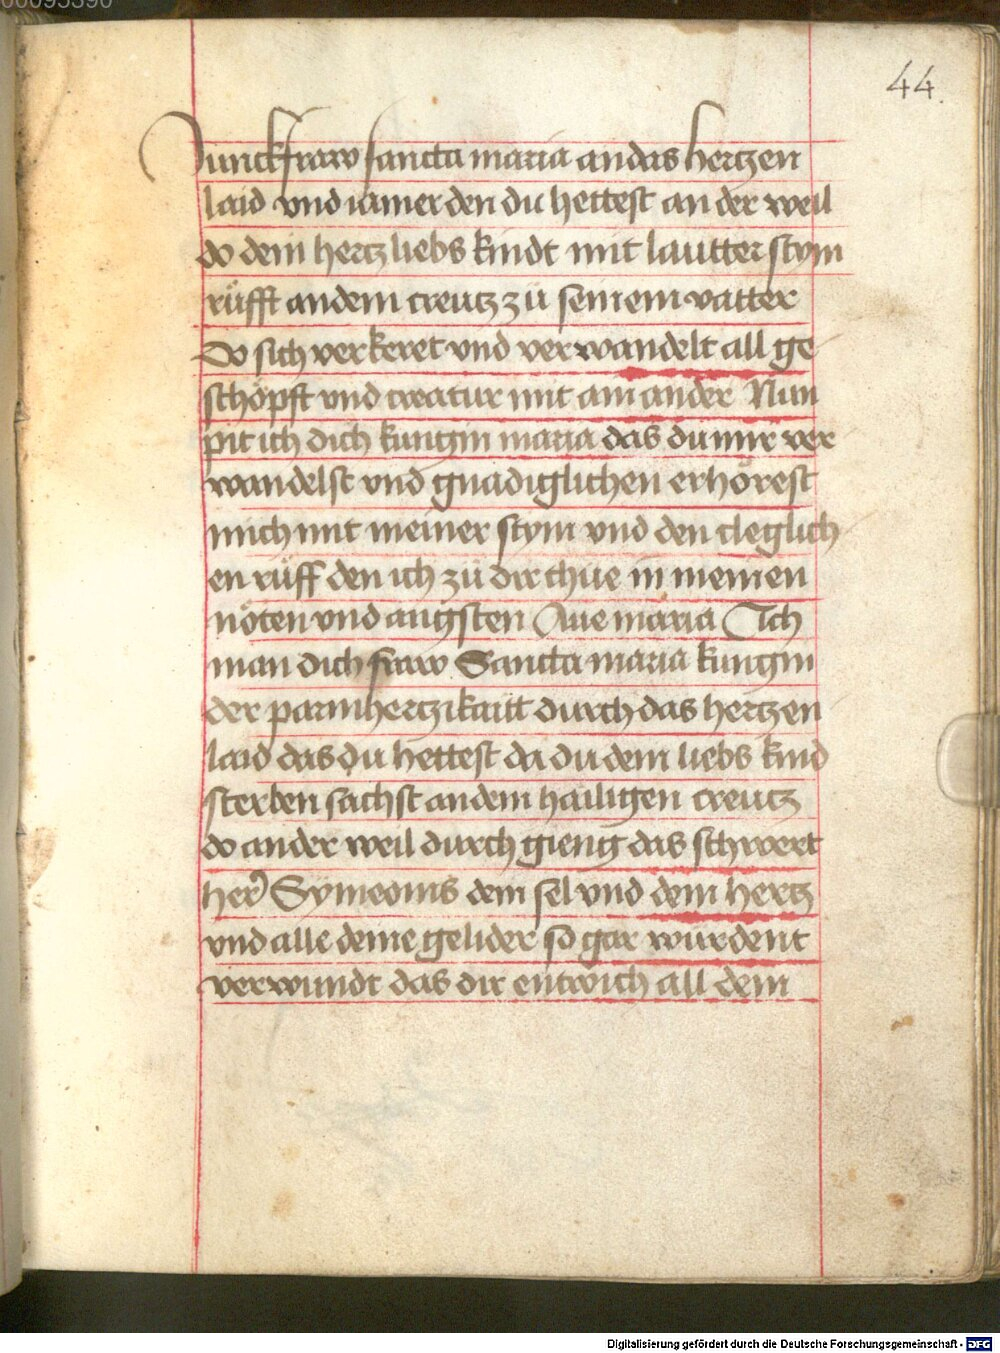 44.
Junckfraw sancta maria an das hertzen
laid vnd iamer den du hettest an der weil
do dein hertz liebs kindt mit lautter stym
rüfft an dem creutz zü seinem vatter
Do sich verkeret vnd verwandelt all ge
schöpft vnd creatur mit ain ander Nun
pit ich dich kungin maria das du mir ver
wandelst vnd gnadiglichen erhörest
mich mit meiner stym vnd den cleglich
en rüff den ich zü dir thue in meinen
nöten vnd angsten Aue maria Ich
man dich fraw Sancta maria kungin
der parmhertzikaitt durch das hertzen
laid das du hettest da du dein liebs kind
sterben sachst an dem hailigen creutz
do an der weil durch gieng das schwert
her Symeonis dein sel vnd dein hertz
vnd alle deine gelider so gar wurdent
verwundt das dir entwich all dein
Digitalisierung gefördert durch die Deutsche Forschungsgemeinschaft - DFG